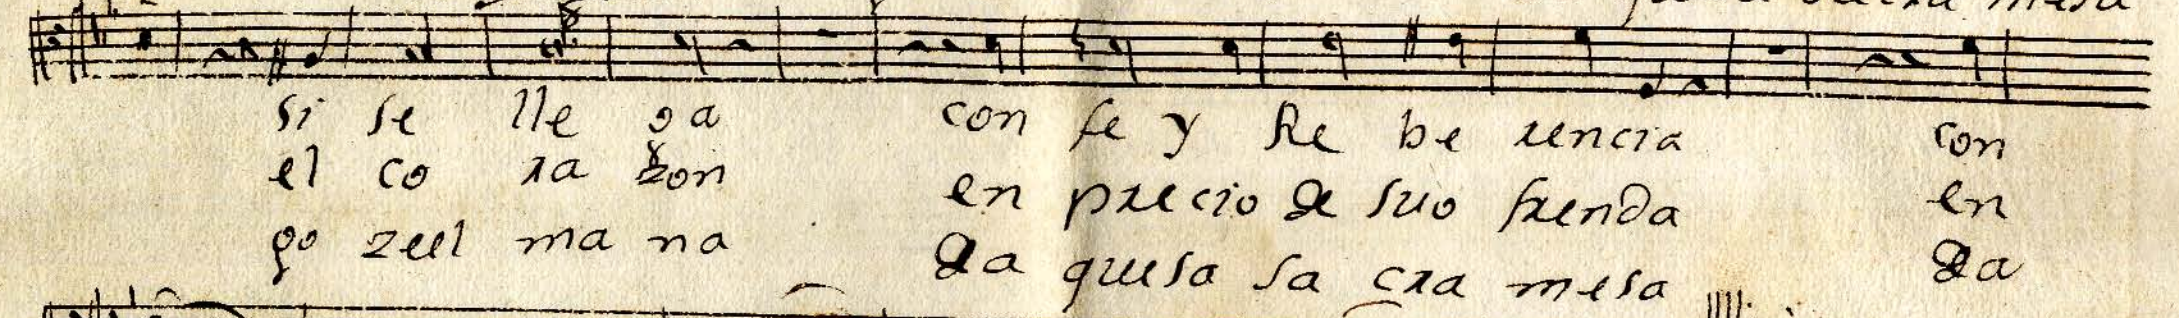 sacra mesa
si se lle ga con fe y Re be rencia con
el co ra zon en precio de suo frenda en
go zeel ma na da quesa sa cra mesa da